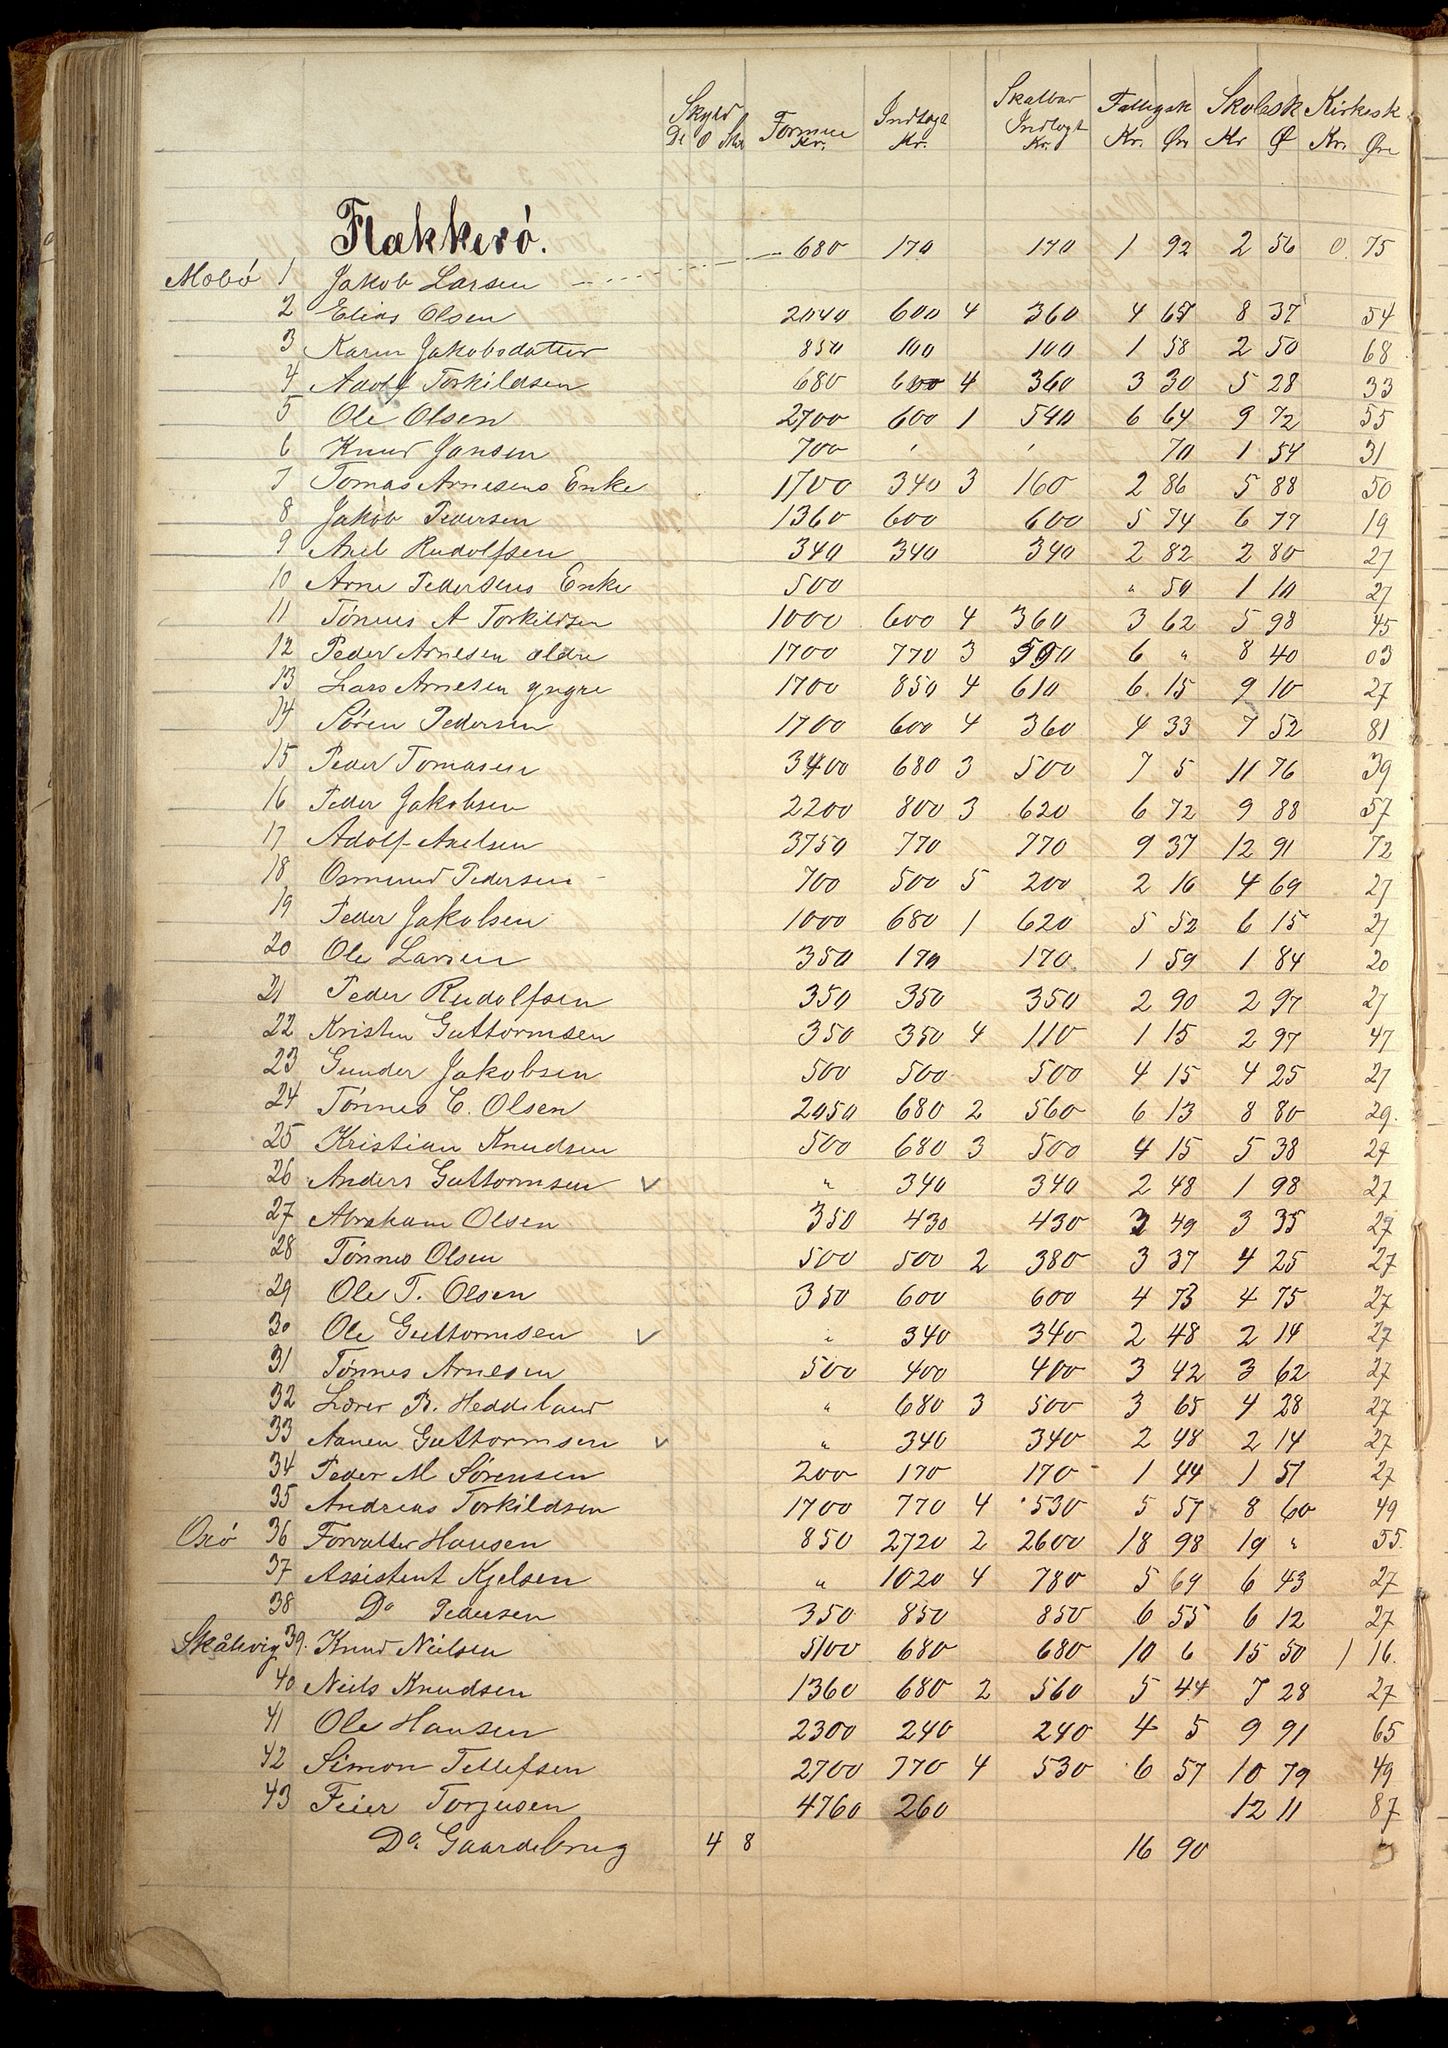 Skyld Formue Indtægt Skatbar Indtægt Fattigsk Skolesk Kirkesk
D O Skr Kr. Kr. Kr. Kr. Øre Kr Ø Kr. Øre
Flækkerö.
Mæbö 1 Jakob Larsen 680 170 170 1 92 2 56 0. 75
2 Elias Olsen 2040 600 4 360 4 67 8 37 54
3 Karen Jakobsdatter 850 100 100 1 58 2 50 68
4 Adolf Torkildsen 680 600 4 360 3 30 5 28 33
5 Ole Olsen 2700 600 1 540 6 64 9 72 55
6 Knud Jansen 700 70 1 54 31
7 Tomas Arnesens Enke 1700 340 3 160 2 86 5 88 50
8 Jakob Pedersen 1360 600 600 5 74 6 77 19
9 Axel Rudolfsen 340 340 340 2 82 2 80 27
10 Arne Pedersens Enke 500 " 50 1 10 27
11 Tönnes A Torkildsen 1000 600 4 360 3 62 5 98 45
12 Peder Arnesen ældre 1700 770 3 590 6 " 8 40 03
13 Lars Arnesen yngre 1700 850 4 610 6 15 9 10 27
14 Sören Pedersen 1700 600 4 360 4 33 7 52 81
15 Peder Tomasen 3400 680 3 500 7 5 11 76 39
16 Peder Jakobsen 2200 800 3 620 6 72 9 88 57
17 Adolf Axelsen 3750 770 770 9 37 12 91 72
18 Osmund Pedersen 700 500 5 200 2 16 4 69 27
19 Peder Jakobsen 1000 680 1 620 5 52 6 15 27
20 Ole Larsen 350 170 170 1 59 1 84 20
21 Peder Rudolfsen 350 350 350 2 90 2 97 27
22 Kristen Guttormsen 350 350 4 110 1 15 2 97 47
23 Gunder Jakobsen 500 500 500 4 15 4 25 27
24 Tönnes C. Olsen 2050 680 2 560 6 13 8 80 29.
25 Kristian Knudsen 500 680 3 500 4 15 5 38 27
26 Anders Guttormsen ✓ " 340 340 2 48 1 98 27
27 Abraham Olsen 350 430 430 3 49 3 35 27
28 Tönnes Olsen 500 500 2 380 3 37 4 25 27
29 Ole T. Olsen 350 600 600 4 73 4 75 27
30 Ole Guttormsen ✓ " 340 340 2 48 2 14 27
31 Tönnes Arnesen 500 400 400 3 42 3 62 27
32 Lærer B. Heddeland " 680 3 500 3 65 4 28 27
33 Aanen Guttormsen ✓ " 340 340 2 48 2 14 27
34 Peder M Sörensen 200 170 170 1 44 1 51 27
35 Andreas Torkildsen 1700 770 4 530 5 57 8 60 49
Oxö 36 Forvalter Hansen 850 2720 2 2600 18 98 19 " 55.
37 Assistent Kjelsen " 1020 4 780 5 69 6 43 27
38 Do Pedersen 350 850 850 6 55 6 12 27
Skålevig 39. Knud Nielsen 5100 680 680 10 6 15 50 1 16.
40 Neils Knudsen 1360 680 2 560 5 44 7 28 27
41 Ole Hansen 2300 240 240 4 5 9 91 65
42 Simon Tellefsen 2700 770 4 530 6 57 10 79 49
43 Feier Torjusen 4760 260 12 11 87
Do Gaardebrug 4 8 16 90